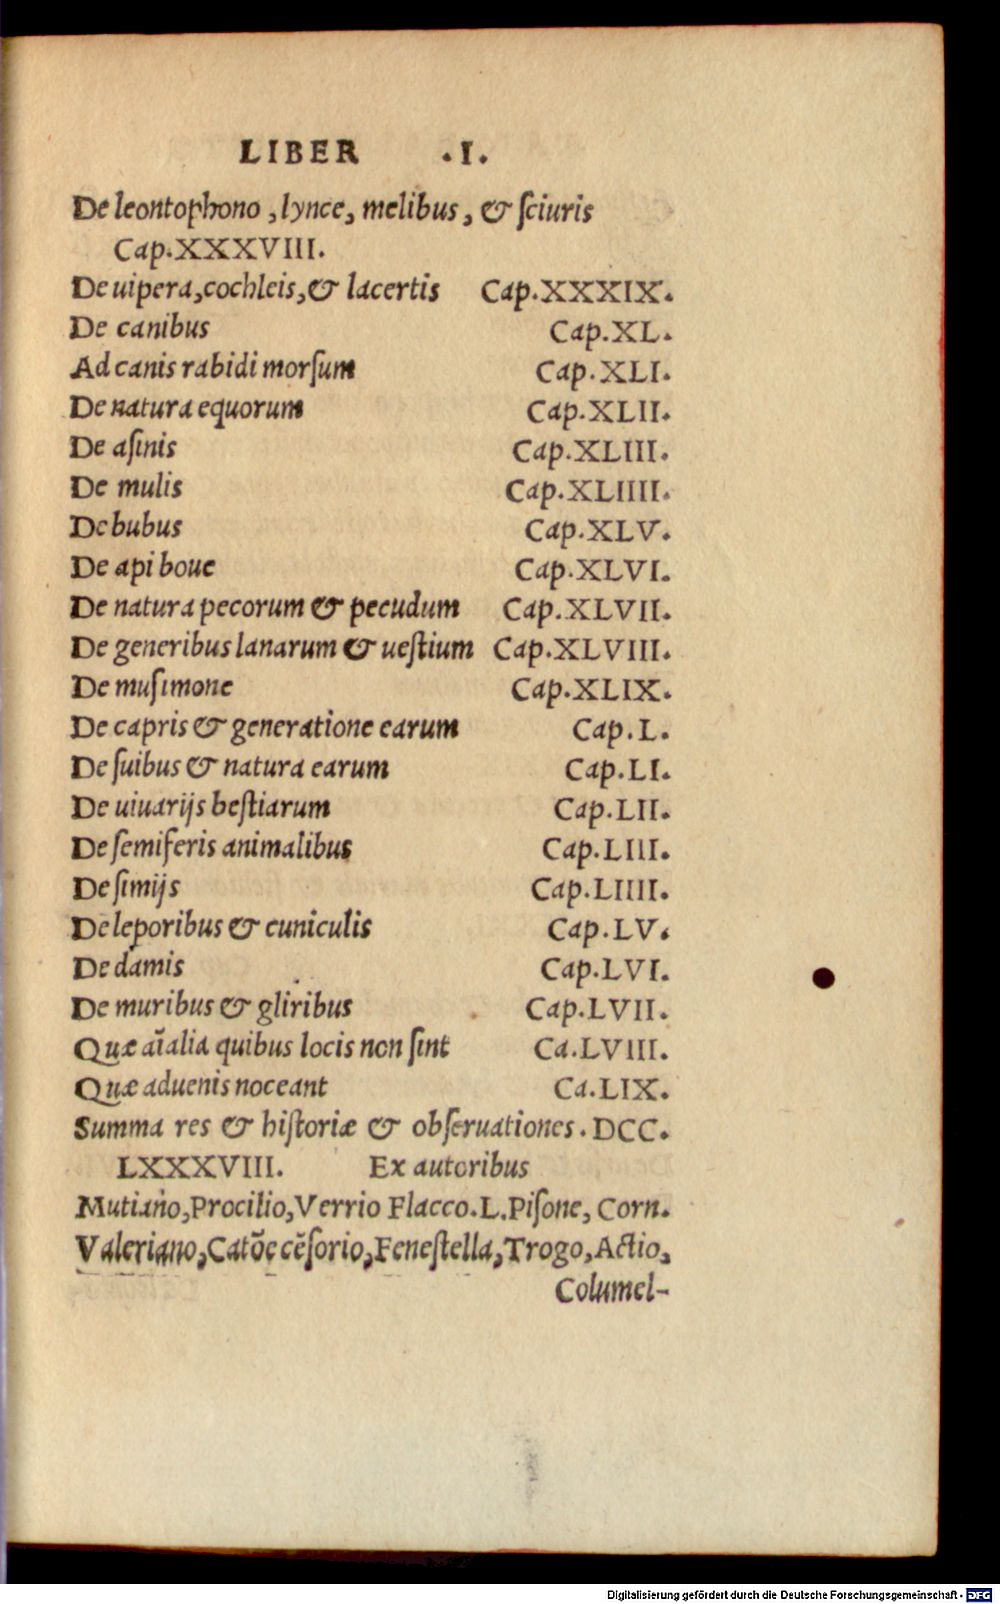 LIBER .I.
De leontophono, lynce, melibus, & ſciuris
Cap.XXXVIII.
De uipera, cochleis, & lacertis Cap.XXXIX.
De canibus Cap.XL.
Ad canis rabidi morſum Cap.XLI.
De natura equorum Cap.XLII.
De aſinis Cap.XLIII.
De mulis Cap.XLIIII.
De bubus Cap.XLV.
De api boue Cap.XLVI.
De natura pecorum & pecudum Cap.XLVII.
De generibus lanarum & ueſtium Cap.XLVIII.
De muſimone Cap.XLIX.
De capris & generatione earum Cap.L.
De ſuibus & natura earum Cap.LI.
De uiuarijs beſtiarum Cap.LII.
De ſemiferis animalibus Cap.LIII.
De ſimijs Cap.LIIII.
De leporibus & cuniculis Cap.LV.
De damis Cap.LVI.
De muribus & gliribus Cap.LVII.
Quæ aĩalia quibus locis non ſint Ca.LVIII.
Quæ aduenis noceant Ca.LIX.
Summa res & hiſtoriæ & obſeruationes. DCC.
LXXXVIII. Ex autoribus
Mutiano, Procilio, Verrio Flacco. L. Piſone, Corn.
Valeriano, Catõe cẽſorio, Feneſtella, Trogo, Actio,
Columel-
Digitalisierung gefördert durch die Deutsche Forschungsgemeinschaft - DFG